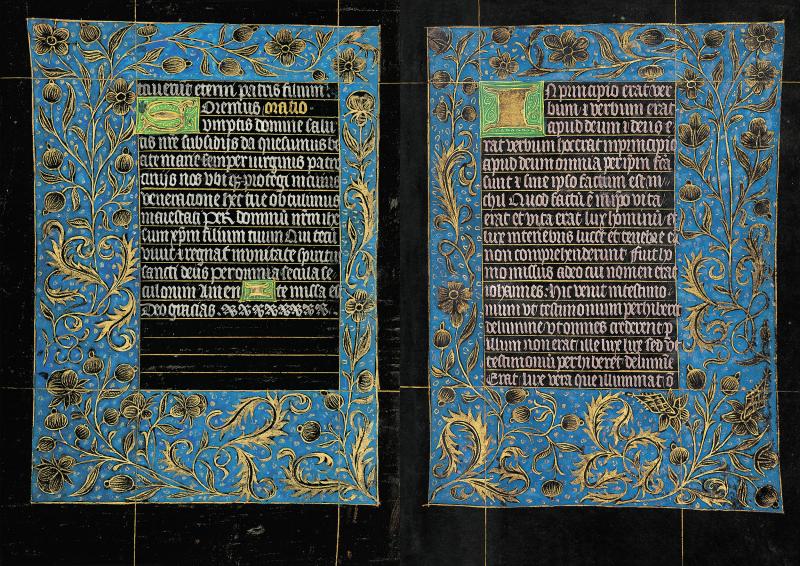 tauerunt eterni patris filium
Oremus oratio
Sumptis domine salu
tis nre subsidijs da quesumus b
ate marie semper uirginis patro
cinijs nos vbiqz protegi in cuius
veneratione hec tue obtulimus
maiestati Per dominū nrm ihe
sum xpm filium tuum Qui tecū
viuit et regnat in vnitate spiritus
sancti deus per omnia secula se
culorum Amen Ite missa est
Deo gracias
In principio erat ver
bum ⁊ verbum erat
apud deum ⁊ deus e
rat verbum hoc erat in principio
apud deum omnia per ipm fcā
sunt ⁊ sine ipso factum est ni
hil Quod factū ē in ipso vita
erat et vita erat lux hominū et
lux in tenebris lucet et tenebre eā
non comprehenderunt Fuit ho
mo missus a deo cui nomen erat
iohannes Hic venit in testimo
nium vt testimonium perhiberet
de lumine vt omnes crederent p
illum non erat ille lux sed vt
testimoniū perhiberet de lumīe
Erat lux vera que illuminat o